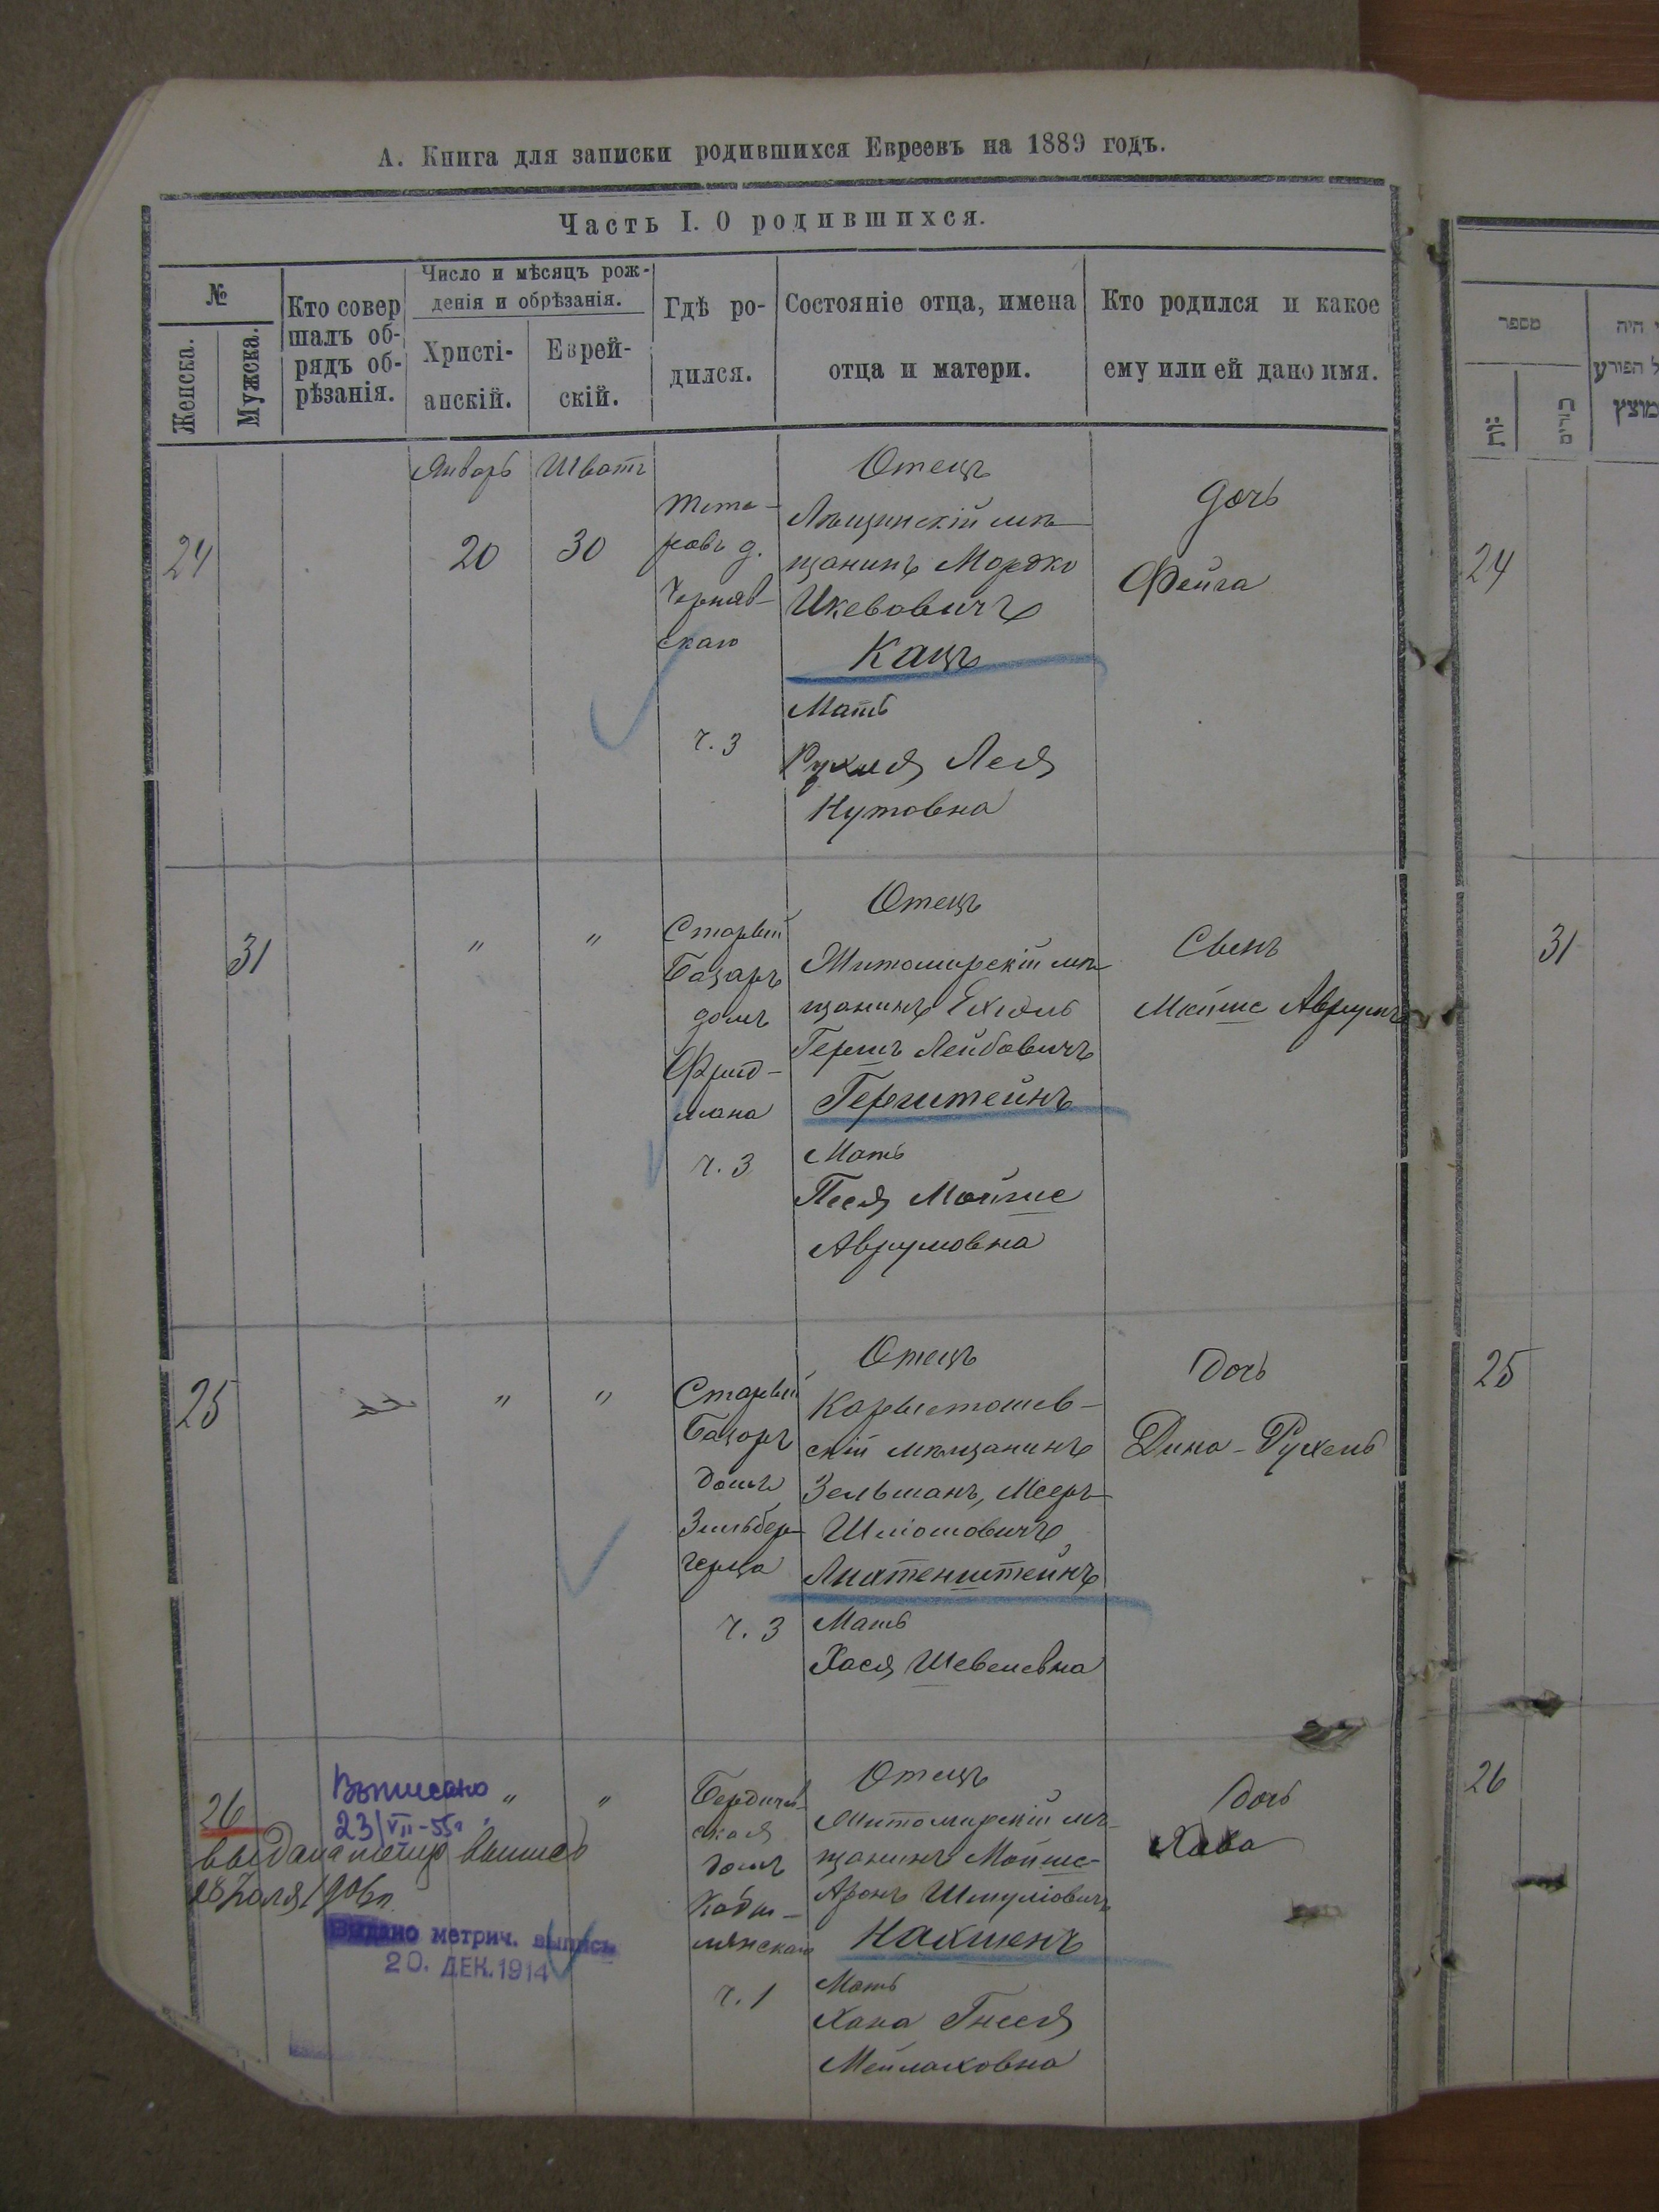 А. Книга для записки родившихся Евреевъ на 1889 годъ.
Часть I. О родившихся.
№
Женска.
Мужска.
Кто совер
шалъ об-
рядъ об-
рѣзанія.
Число и мѣсяцъ рож-
денія и обрѣзанія.
Христі-
анскій.
Еврей-
скій.
Гдѣ ро-
дился.
Состояніе отца, имена
отца и матери.
Кто родился и какое
ему или ей дано имя.
24
Январь
20
Шватъ
30
ровъ д.
Черняв-
скаго
ч. 3
Отецъ
мѣ-
щанинъ Мордко
Ицковичъ
Кацъ
Мать
Рухля Лея
Нутовна
Дочь
Фейга
31
"
"
Старый
Базаръ
домъ
Фрид-
мана
ч. 3
Отецъ
Житомирскій мѣ-
щанинъ Ехіель
Гершъ Лейбовичъ
Герштейнъ
Мать
Песя Мойше
Аврумовна
Сынъ
Мойше Аврумъ
25
"
"
Старый
Базаръ
домъ
Зильбер-
герца
ч. 3
Отецъ
Коростошев-
скій мѣщанинъ
Зельманъ, Мееръ
Шліомовичъ
Лихтенштейнъ
Мать
Хася Шевелевна
Дочь
Дина-Рухель
26
Выписано
23/VII-55г
выдана метир выпись
28 Іюля 1906г.
Выдано метрич. выпись
20. ДЕК. 1914
"
"
Бердичев-
ская
домъ
Кобы-
лянскаго
ч. 1
Отецъ
Житомирскій мѣ-
щанинъ Мойше-
Аронъ Шмуліовичъ
Нахшенъ
Мать
Хана Гнеся
Мейлаховна
Дочь
Хава
מספר
היה
הפורע
מוצץ
זכרים
24
31
25
26